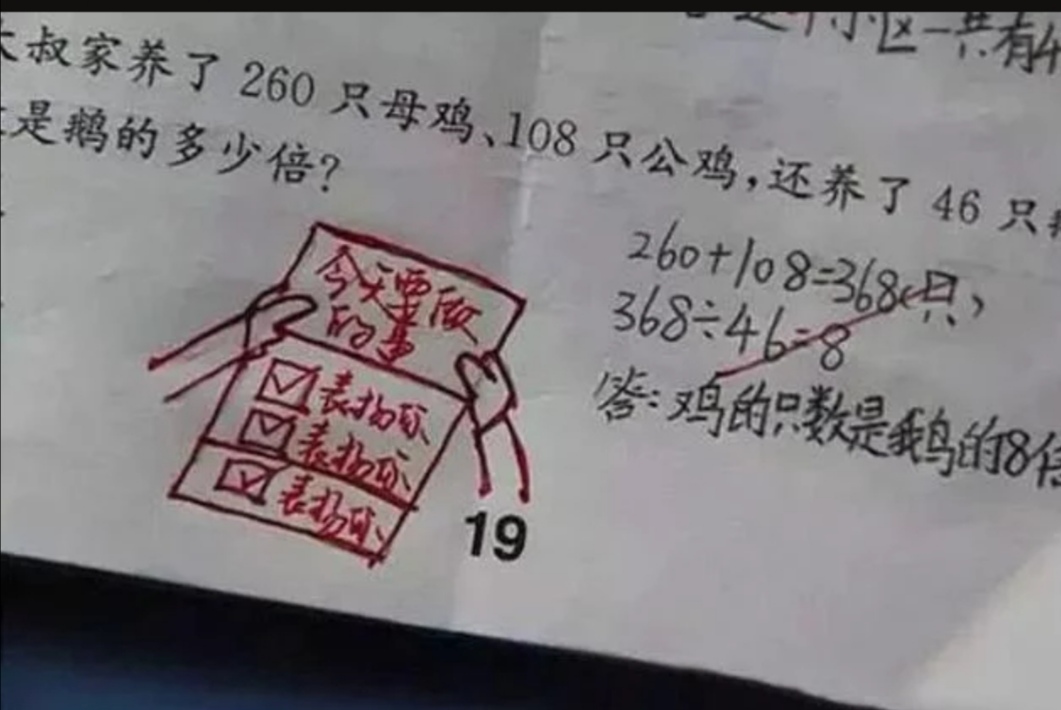 是个小区一共有4
大叔家养了 260 只母鸡、108 只公鸡，还养了 46 只
是鹅的多少倍？
260+108=368(只)
368÷46=8
答：鸡的只数是鹅的8倍
今天要做
的事
表扬你
表扬你
表扬你
19